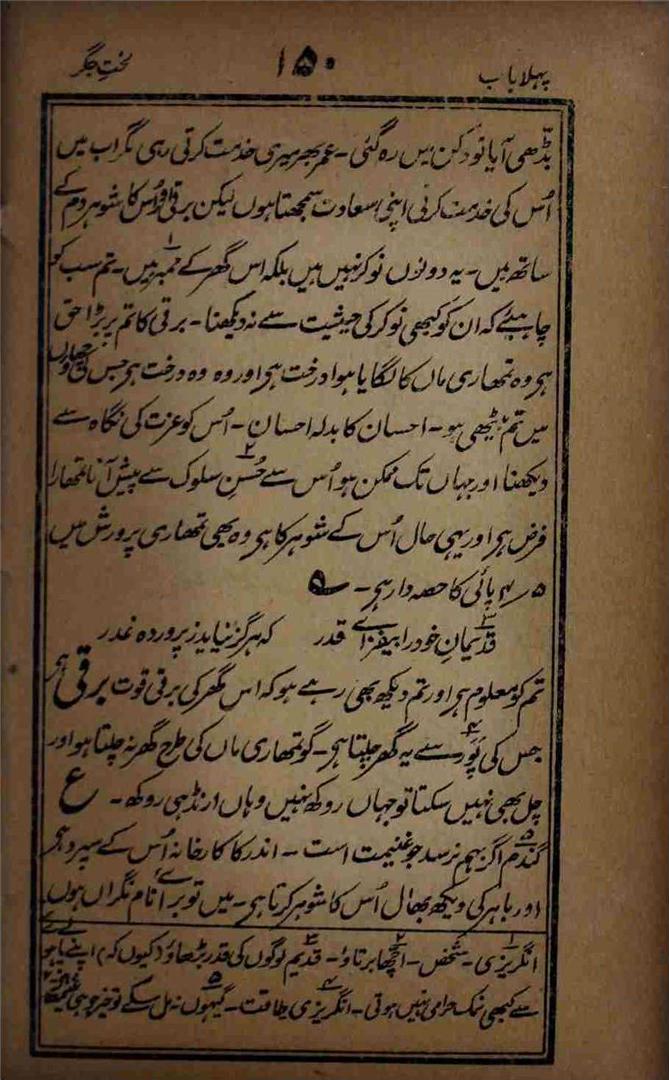 پہلا باب ۱۵۰ لختِ جگر
بڈّھی آیا تو دکن میں رہ گئی۔ عمر بھر میری خدمت کرتی رہی مگر اب میں
اُس کی خدمت کرنی اپنی سعادت سمجھتا ہوں لیکن برقی اور اُس کا شوہر دم کے
ساتھ ہیں۔ یہ دونوں نوکر نہیں ہیں بلکہ اس گھر کے ممبر ہیں۔ تم سب کو
چاہئے کہ ان کو کبھی نوکر کی حیثیت سے نہ دیکھنا۔ برقی کا تم پر بڑا حق
ہی وہ تمھاری ماں کا لگایا ہوا درخت ہی اور وہ وہ درخت ہی جس کی چھاؤں
میں تم بیٹھی ہو۔ احسان کا بدلہ احسان۔ اُس کو عزت کی نگاہ سے
دیکھنا اور جہاں تک ممکن ہو اُس سے حُسنِ سلوک سے پیش آنا تمھارا
فرض ہی اور یہی حال اُس کے شوہر کا ہی وہ بھی تمھاری پرورش میں
۵ ؍ ۴ پائی کا حصہ دار ہی۔ ۵
قدیمانِ خود را بیفزاے قدر کہ ہرگز نیاید ز پروردہ غدر
تم کو معلوم ہی اور تم دیکھ بھی رہے ہو کہ اس گھر کی برقی قوت برقی ہی
جس کی پَور سے یہ گھر چلتا ہی۔ گو تمھاری ماں کی طرح گھر نہ چلتا ہو اور
چل بھی نہیں سکتا تو جہاں روکھ نہیں وہاں ارنڈ ہی روکھ۔ ع
گندم اگر بہم نرسد جو غنیمت است۔ اندر کا کارخانہ اُس کے سپرد ہی
اور باہر کی دیکھ بھال اُس کا شوہر کرتا ہی۔ میں تو براے نام نگراں ہوں
۱ انگریزی۔ شخص۔ ۲ اچھا برتاؤ۔ ۳ قدیم لوگوں کی قدر بڑھاؤ (کیوں کہ) اپنے پالے ہوئے
سے کبھی نمک حرامی نہیں ہوتی۔ ۴ انگریزی طاقت۔ ۵ گیہوں نہ مل سکے تو خیر جو ہی غنیمت